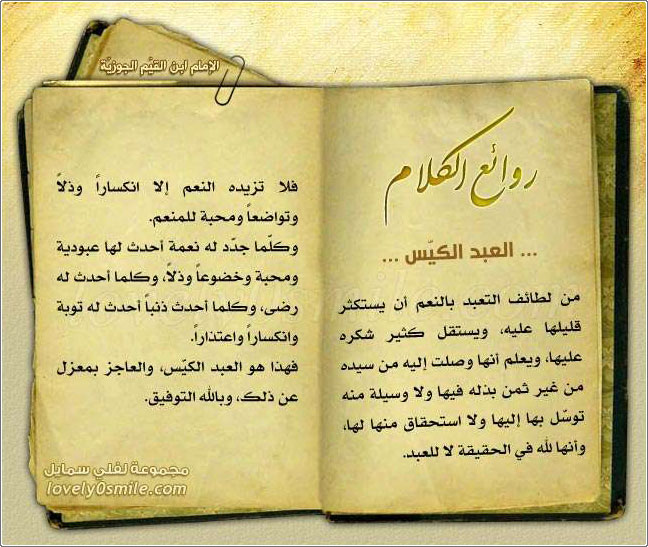 الإمام ابن القيّم الجوزيّة
روائع الكلام
... العبد الكيّس ...
من لطائف التعبد بالنعم أن يستكثر
قليلها عليه، ويستقل كثير شكره
عليها، ويعلم أنها وصلت إليه من سيده
من غير ثمن بذله فيها ولا وسيلة منه
توسّل بها إليها ولا استحقاق منها لها،
وأنها لله في الحقيقة لا للعبد.
فلا تزيده النعم إلا انكساراً وذلاً
وتواضعاً ومحبة للمنعم.
وكلّما جدّد له نعمة أحدث لها عبودية
ومحبة وخضوعاً وذلاً، وكلما أحدث له
رضى، وكلما أحدث ذنباً أحدث له توبة
وانكساراً واعتذاراً.
فهذا هو العبد الكيّس، والعاجز بمعزل
عن ذلك، وبالله التوفيق.
مجموعة لفلي سمايل
lovely0smile.com